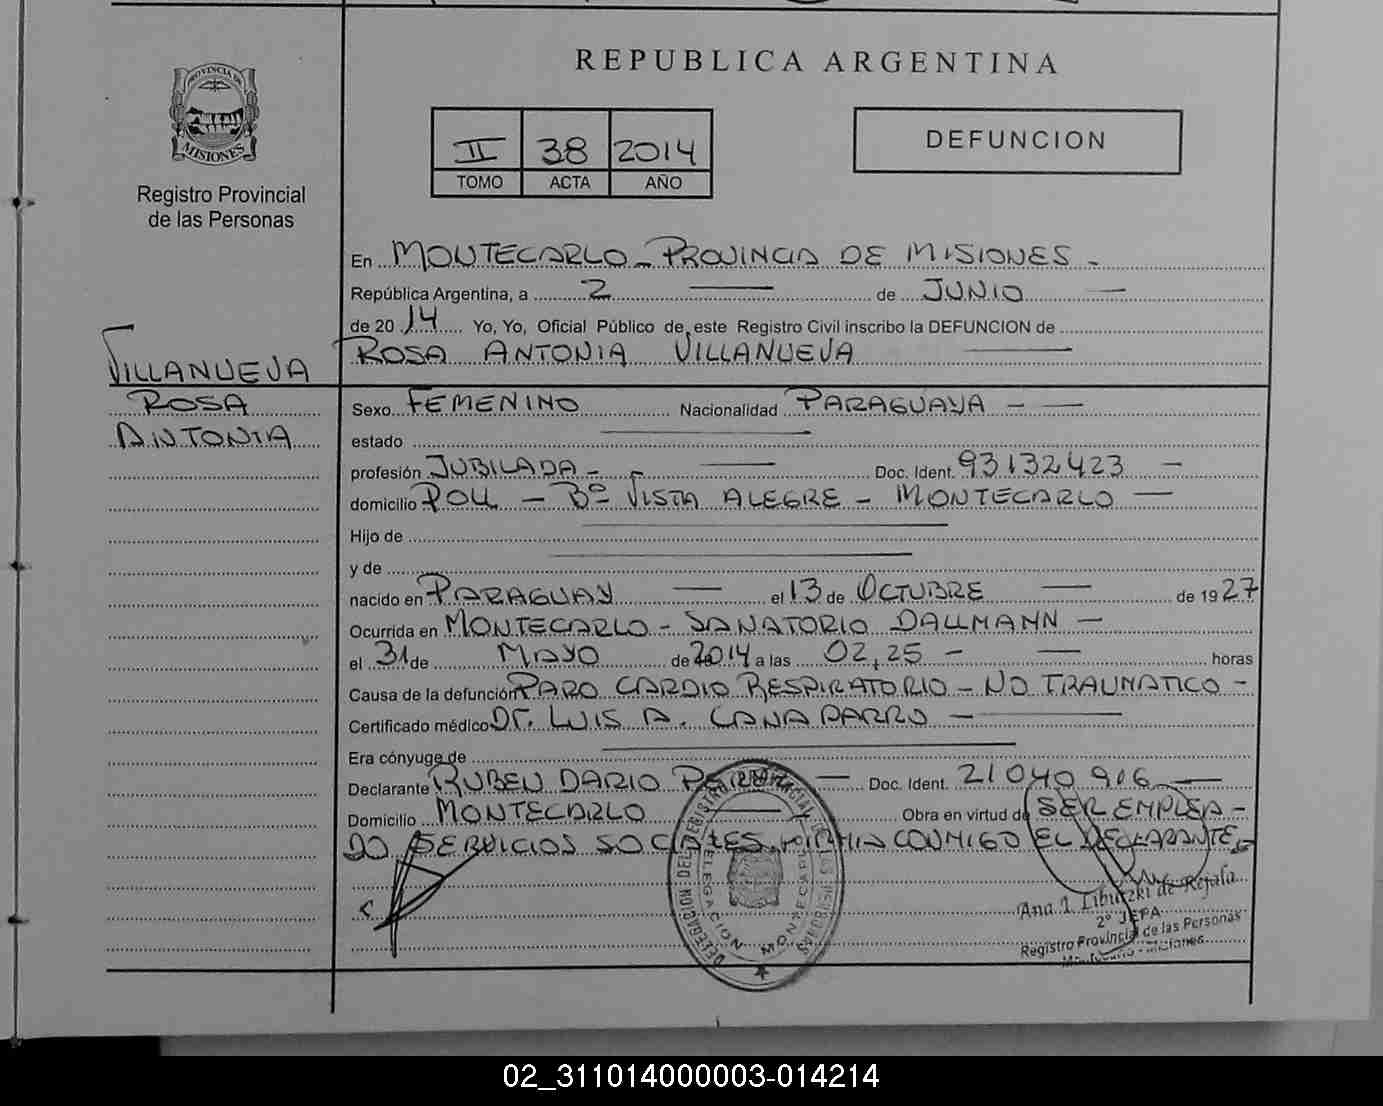 REPUBLICA ARGENTINA
PROVINCIA DE
MISIONES
Registro Provincial
de las Personas
II 38 2014
TOMO ACTA AÑO
DEFUNCION
En MONTECARLO - PROVINCIA DE MISIONES -
República Argentina, a 2 — de JUNIO —
de 20 14 Yo, Yo, Oficial Público de este Registro Civil inscribo la DEFUNCION de
ROSA ANTONIA VILLANUEVA —
VILLANUEVA
ROSA
ANTONIA
Sexo FEMENINO Nacionalidad PARAGUAYA - —
estado —
profesión JUBILADA - — Doc. Ident. 93132423 —
domicilio - Bº VISTA ALEGRE - MONTECARLO —
Hijo de —
y de —
nacido en PARAGUAY — el 13 de OCTUBRE — de 19 27
Ocurrida en MONTECARLO - SANATORIO DALLMANN —
el 31 de MAYO de 2014 a las 02,25 - — horas
Causa de la defunción PARO CARDIO RESPIRATORIO - NO TRAUMATICO -
Certificado médico Dr. LUIS A. - —
Era cónyuge de —
Declarante RUBEN DARIO — Doc. Ident. 21040906 —
Domicilio MONTECARLO — Obra en virtud de SER EMPLEA-
DO SERVICIOS SOCIALES, FIRMA CONMIGO EL DECLARANTE
DELEGACION MONTECARLO
Ana I. Libutzki de Rejala
2º JEFA
Registro Provincial de las Personas
Misiones
02_311014000003-014214